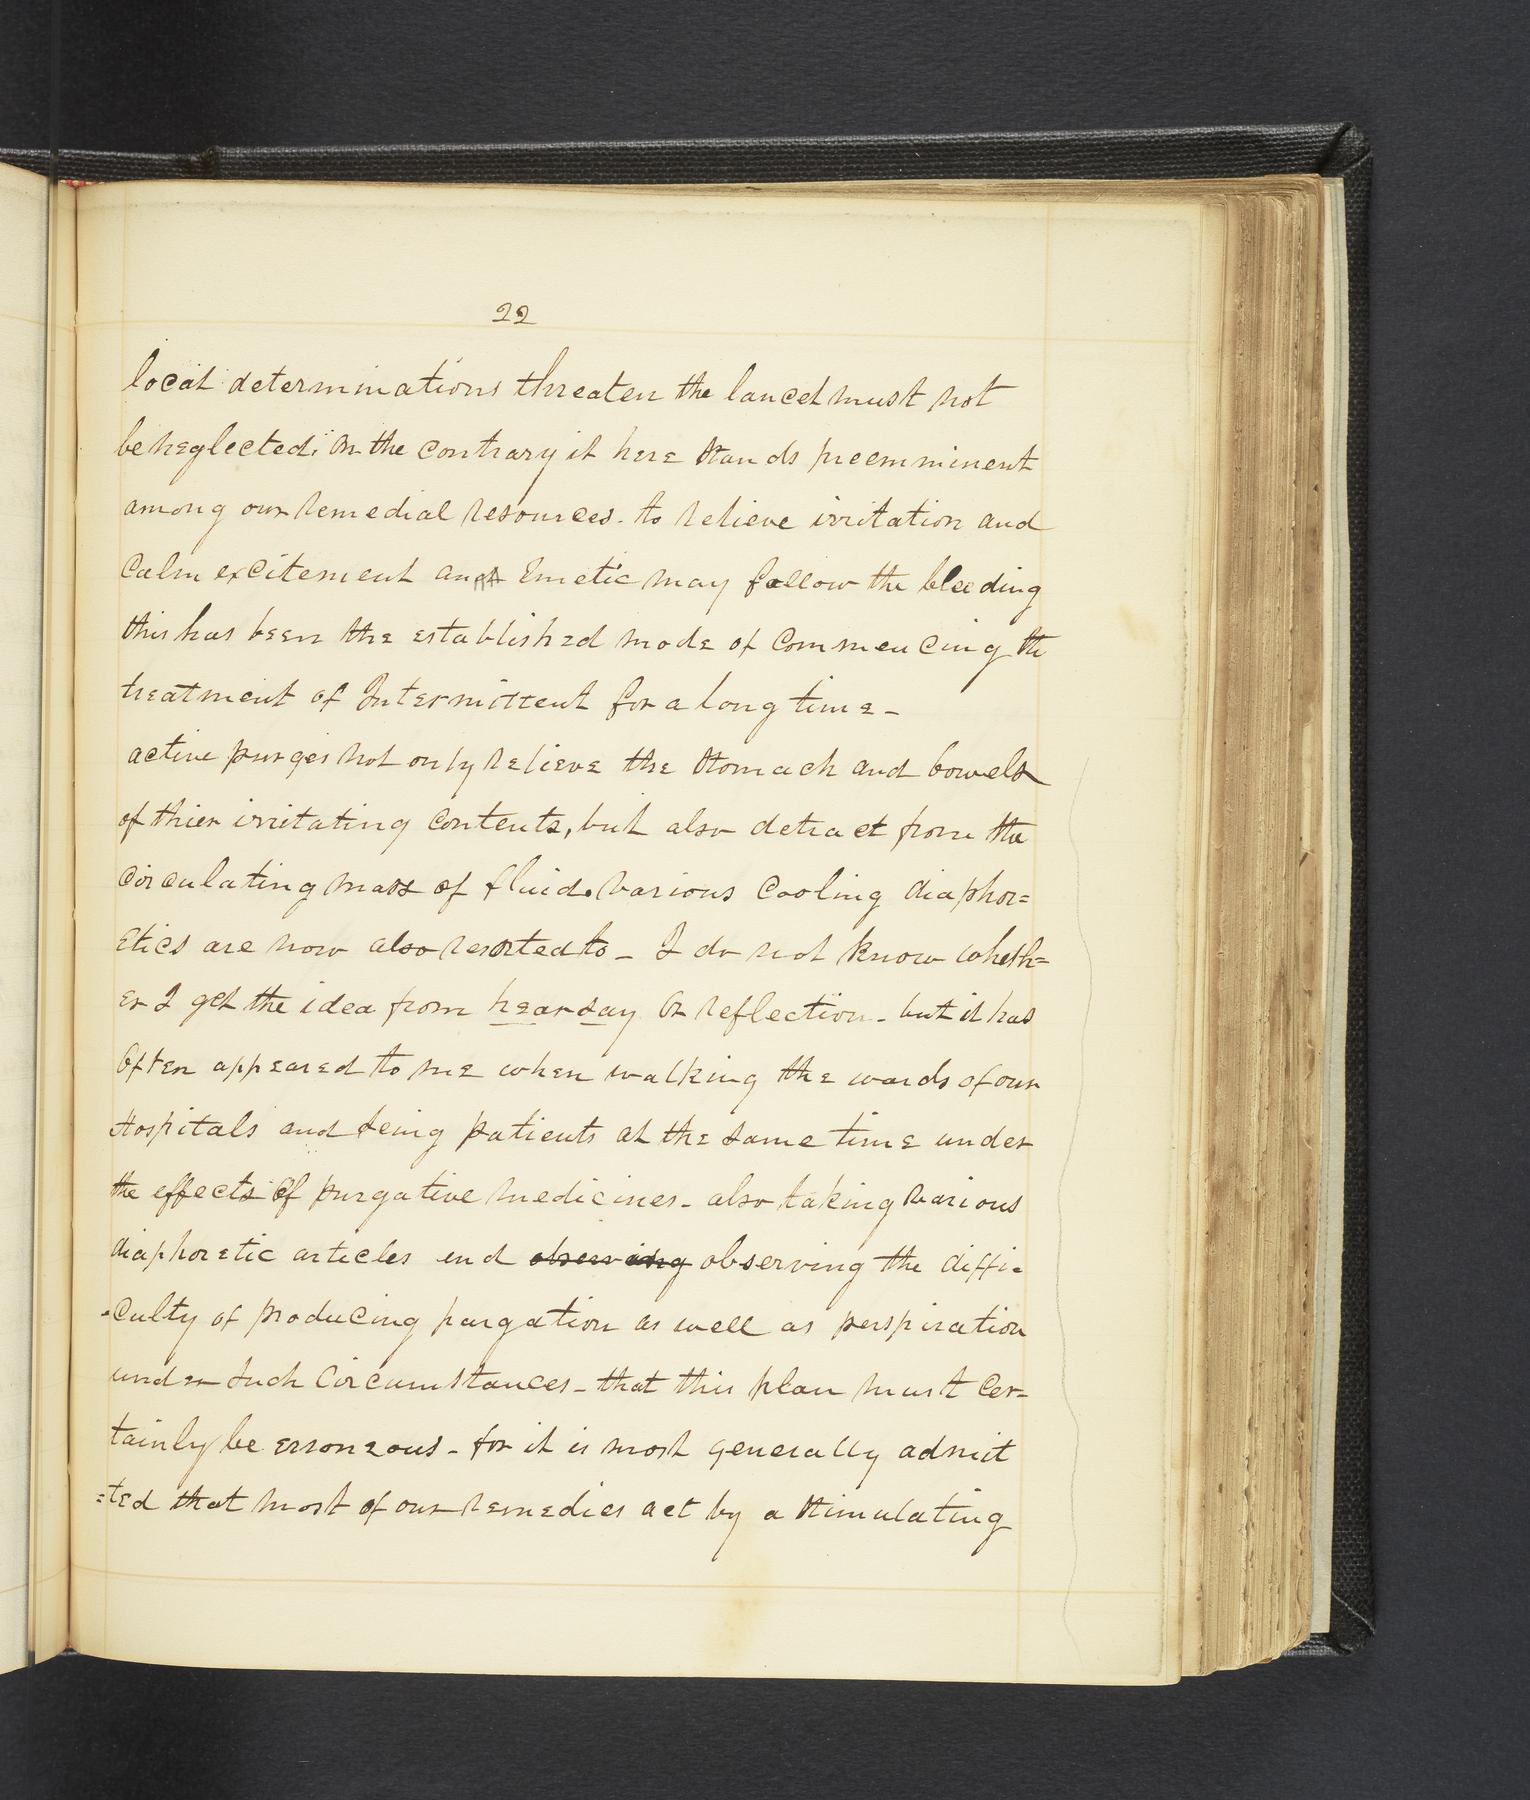 22
local determinations threaten the lancet must not
be neglected. On the contrary it here stands preemminent
among our remedial resources. to relieve irritation and
calm excitement an Emetic may follow the bleeding
this has been the established mode of commencing the
treatment of Intermittent for a long time -
active purges not only relieve the stomach and bowels
of thier irritating contents, but also detract from the
circulating mass of fluid. Various cooling diaphor=
etics are now also resorted to - I do not know wheth=
er I get the idea from hearsay or reflection - but it has
often appeared to me when walking the wards of our
Hospitals and seing patients at the same time under
the effects of purgative medicines - also taking various
diaphoretic articles end observing observing the diffi-
-culty of producing purgation as well as perspiration
under such circumstances - that this plan must cer=
tainly be erroneous - for it is most generally admit
=ted that most of our remedies act by a stimulating